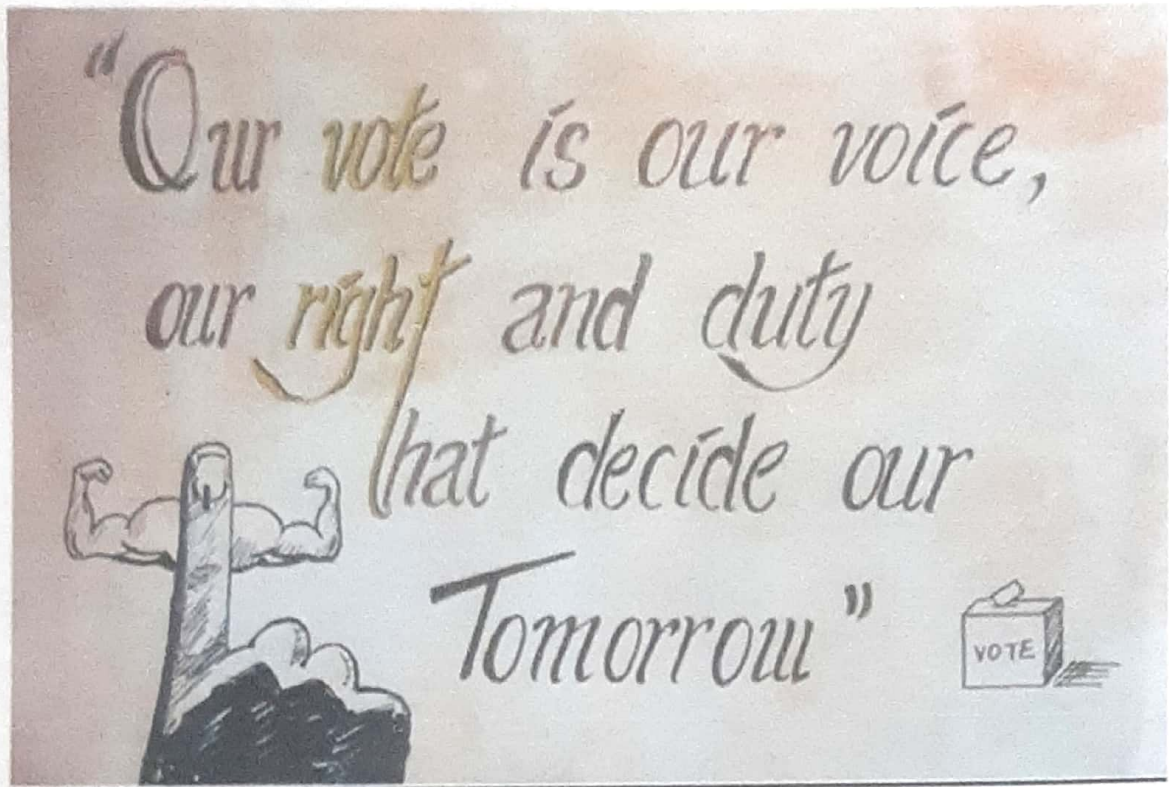 "Our vote is our voice,
our right and duty
that decide our
Tomorrow"
VOTE